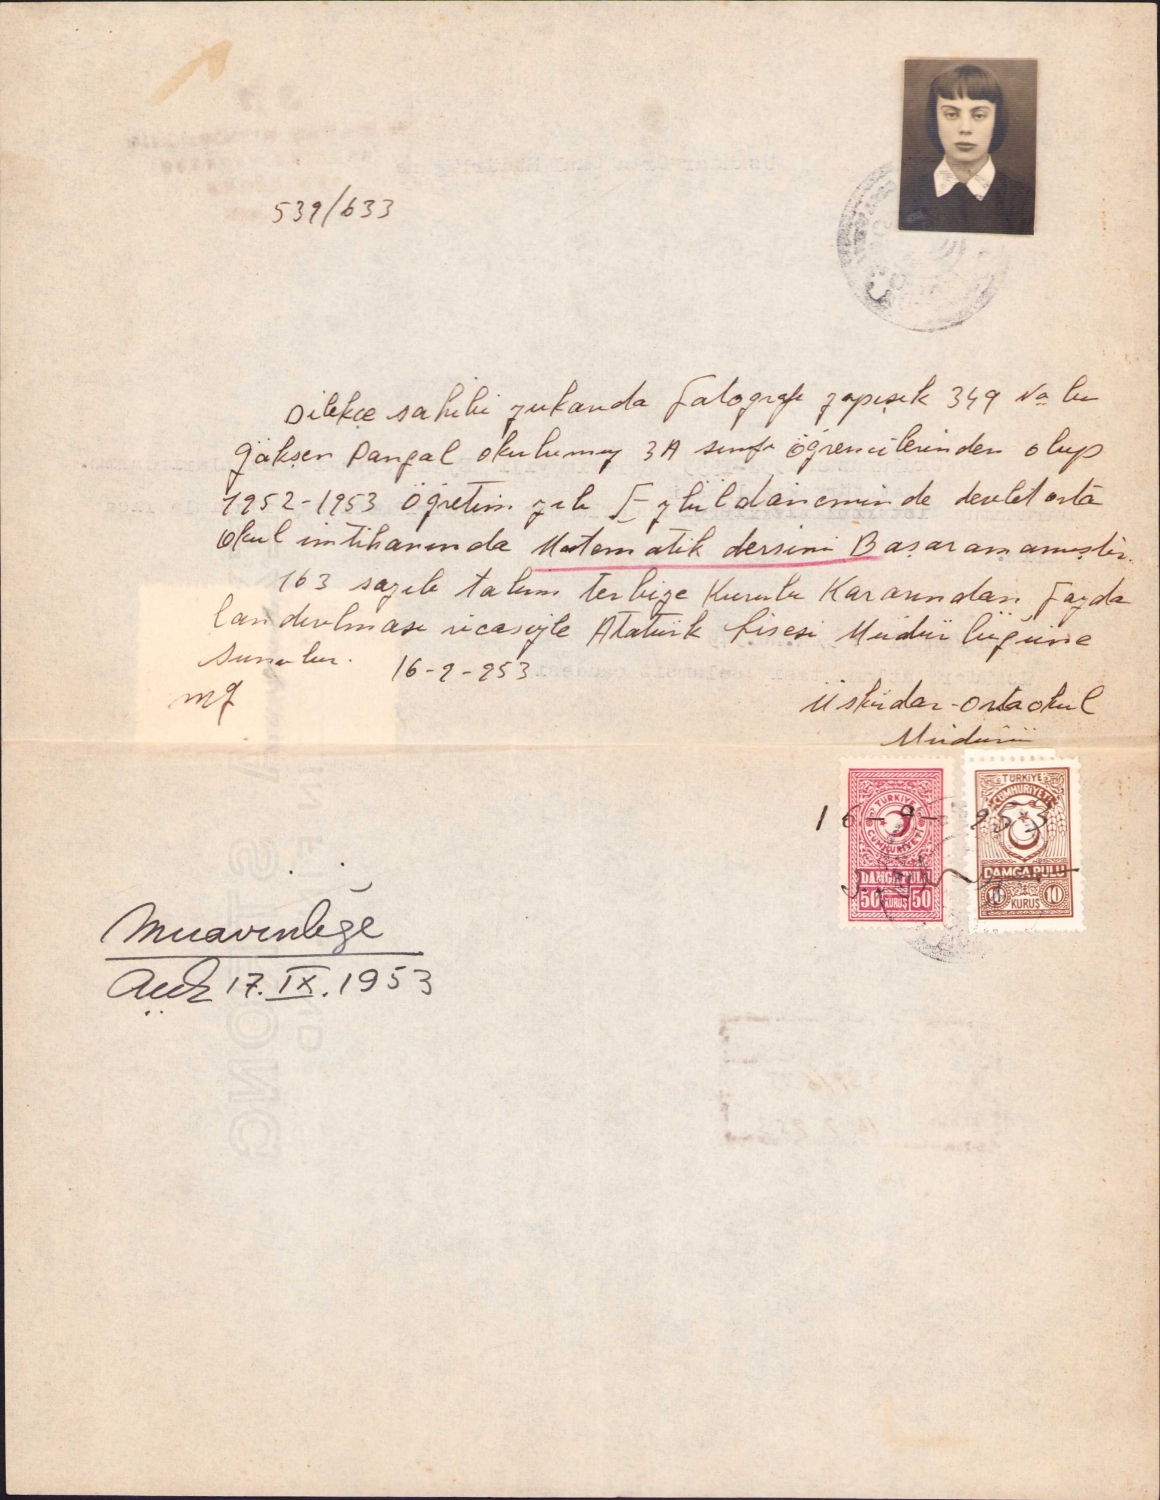 539/633
Dilekçe sahibi yukarıda fatografı yapışık 349 No lu
Gökşen Pangal okulumuz 3A sınıfı öğrencilerinden olup
1952-1953 öğretim yılı Eylül döneminde devlet orta
okul imtihanında Matematik dersini Başaramamıştır.
163 sayılı talim terbiye Kurulu Kararından fayda
landırılması ricasiyle Atatürk Lisesi Müdürlüğüne
Sunulur. 16-9-953
Üsküdar-ortaokul
Müdürü
TÜRKİYE
CUMHURİYETİ
DAMGA PULU
50 KURUŞ 50
TÜRKİYE
CUMHURİYETİ
DAMGA PULU
10 KURUŞ 10
16-9-953
Muavinliğe
17.IX.1953